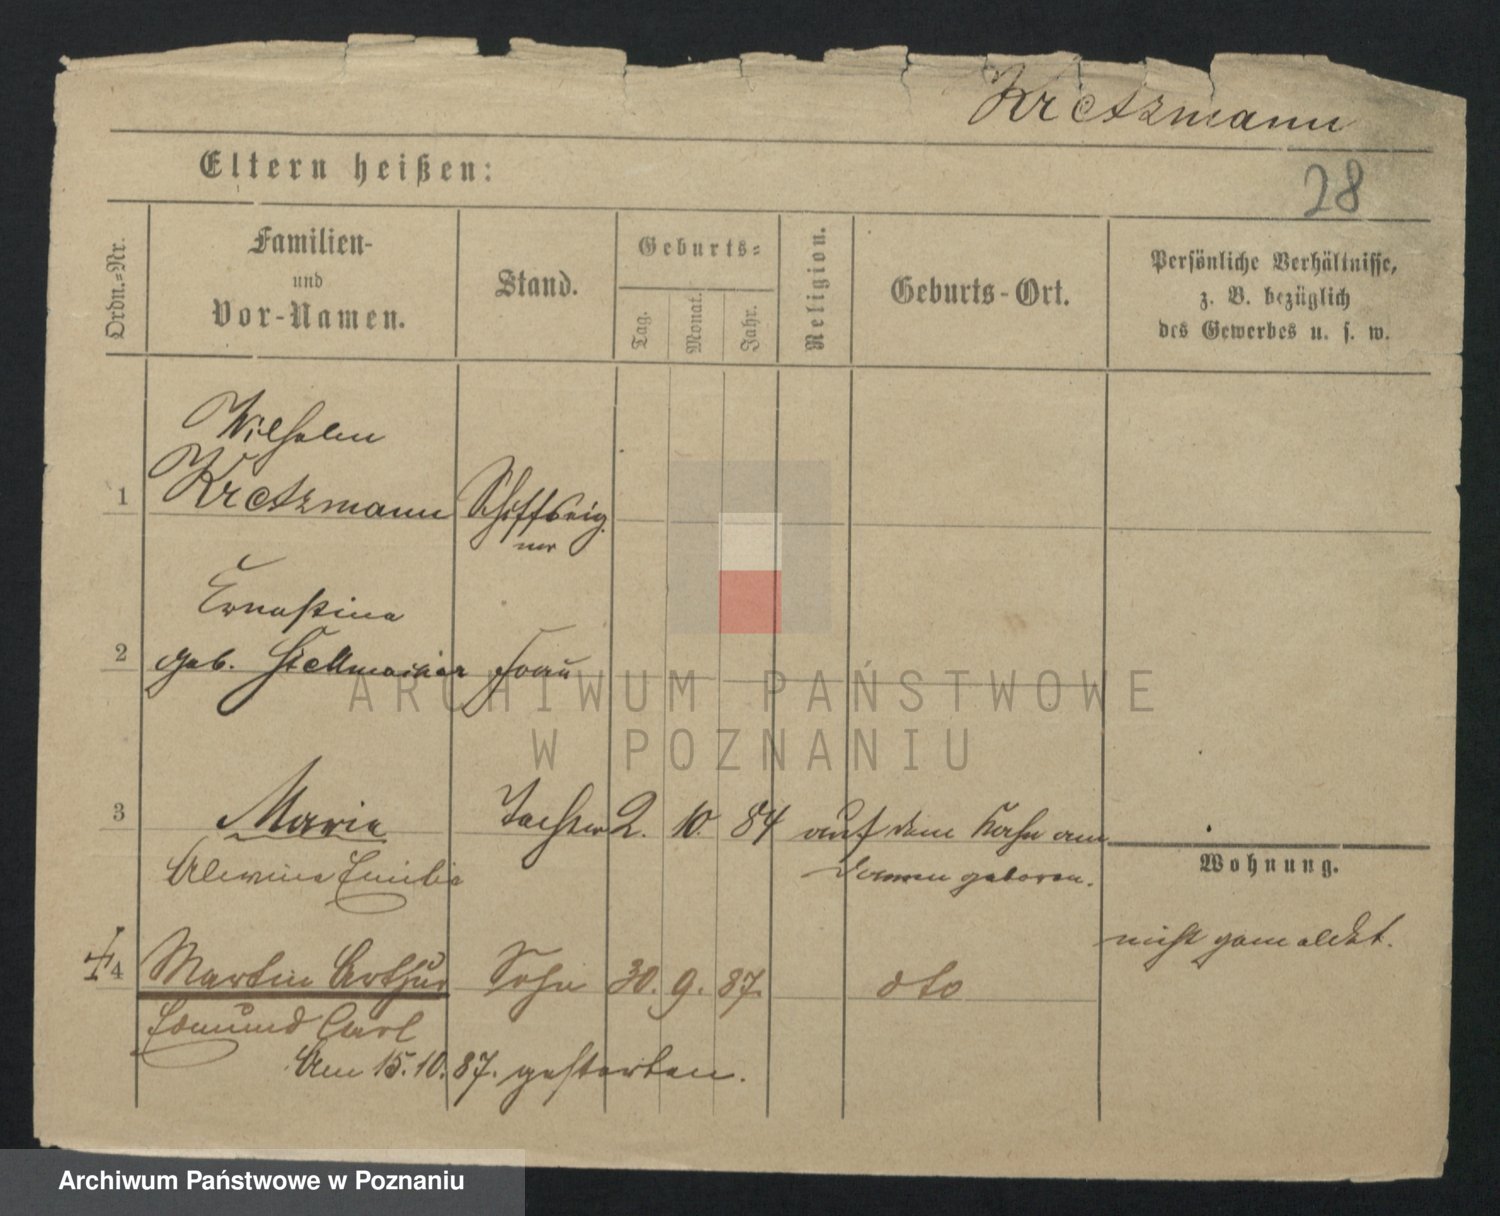 Kretzmann
Eltern heißen:
28
Ordn.-Nr.
Familien-
und
Vor-Namen.
Stand.
Geburts-
Tag.
Monat.
Jahr.
Religion.
Geburts-Ort.
Persönliche Verhältnisse,
z. B. bezüglich
des Gewerbes u. s. w.
Wilhelm
1 Kretzmann Schiffseig
ner
Ernestine
2 geb. Stellmacher Frau
ARCHIWUM PAŃSTWOWE
W POZNANIU
3 Marie Tochter 2. 10. 84 auf dem Kahn am
Emilie geboren.
Wohnung.
nicht gemeldet.
4 Martin Arthur Sohn 30. 9. 87. dto
Edmund Carl
Am 15.10.87. gestorben.
Archiwum Państwowe w Poznaniu